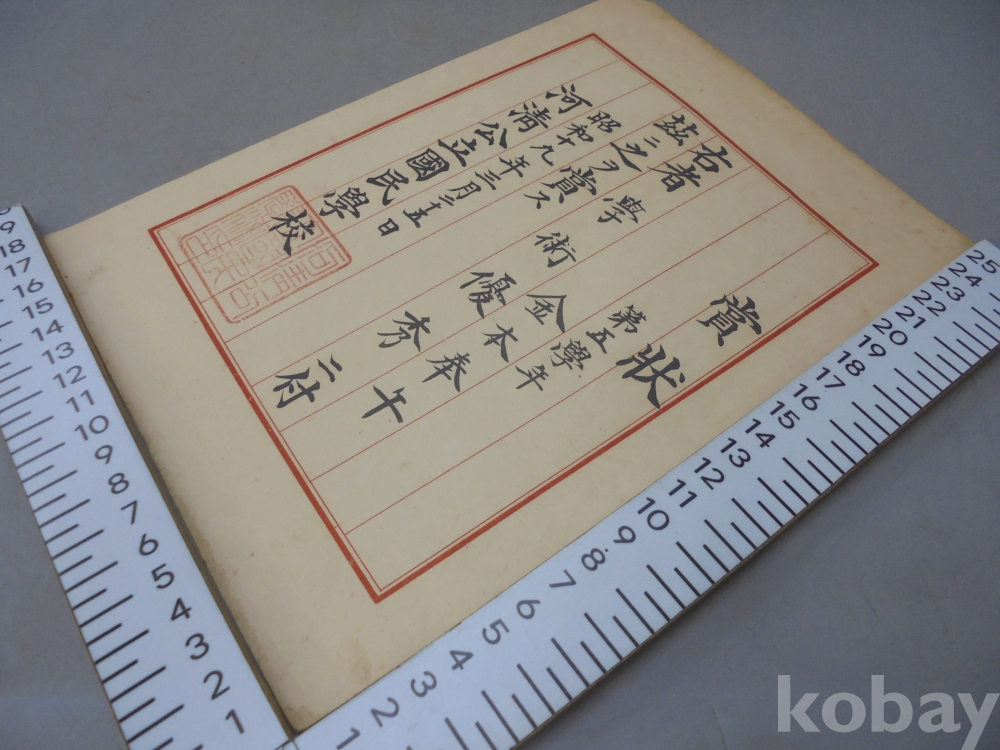 賞狀
第五學年
金本奉午
右者學術優秀ニ付
茲ニ之ヲ賞ス
昭和十九年三月二十五日
河清公立國民學校
1 2 3 4 5 6 7 8 9 10 11 12 13 14 15 16 17 18 19 20 21 22 23 24 25
1 2 3 4 5 6 7 8 9 10 11 12 13 14 15 16 17 18
kobay